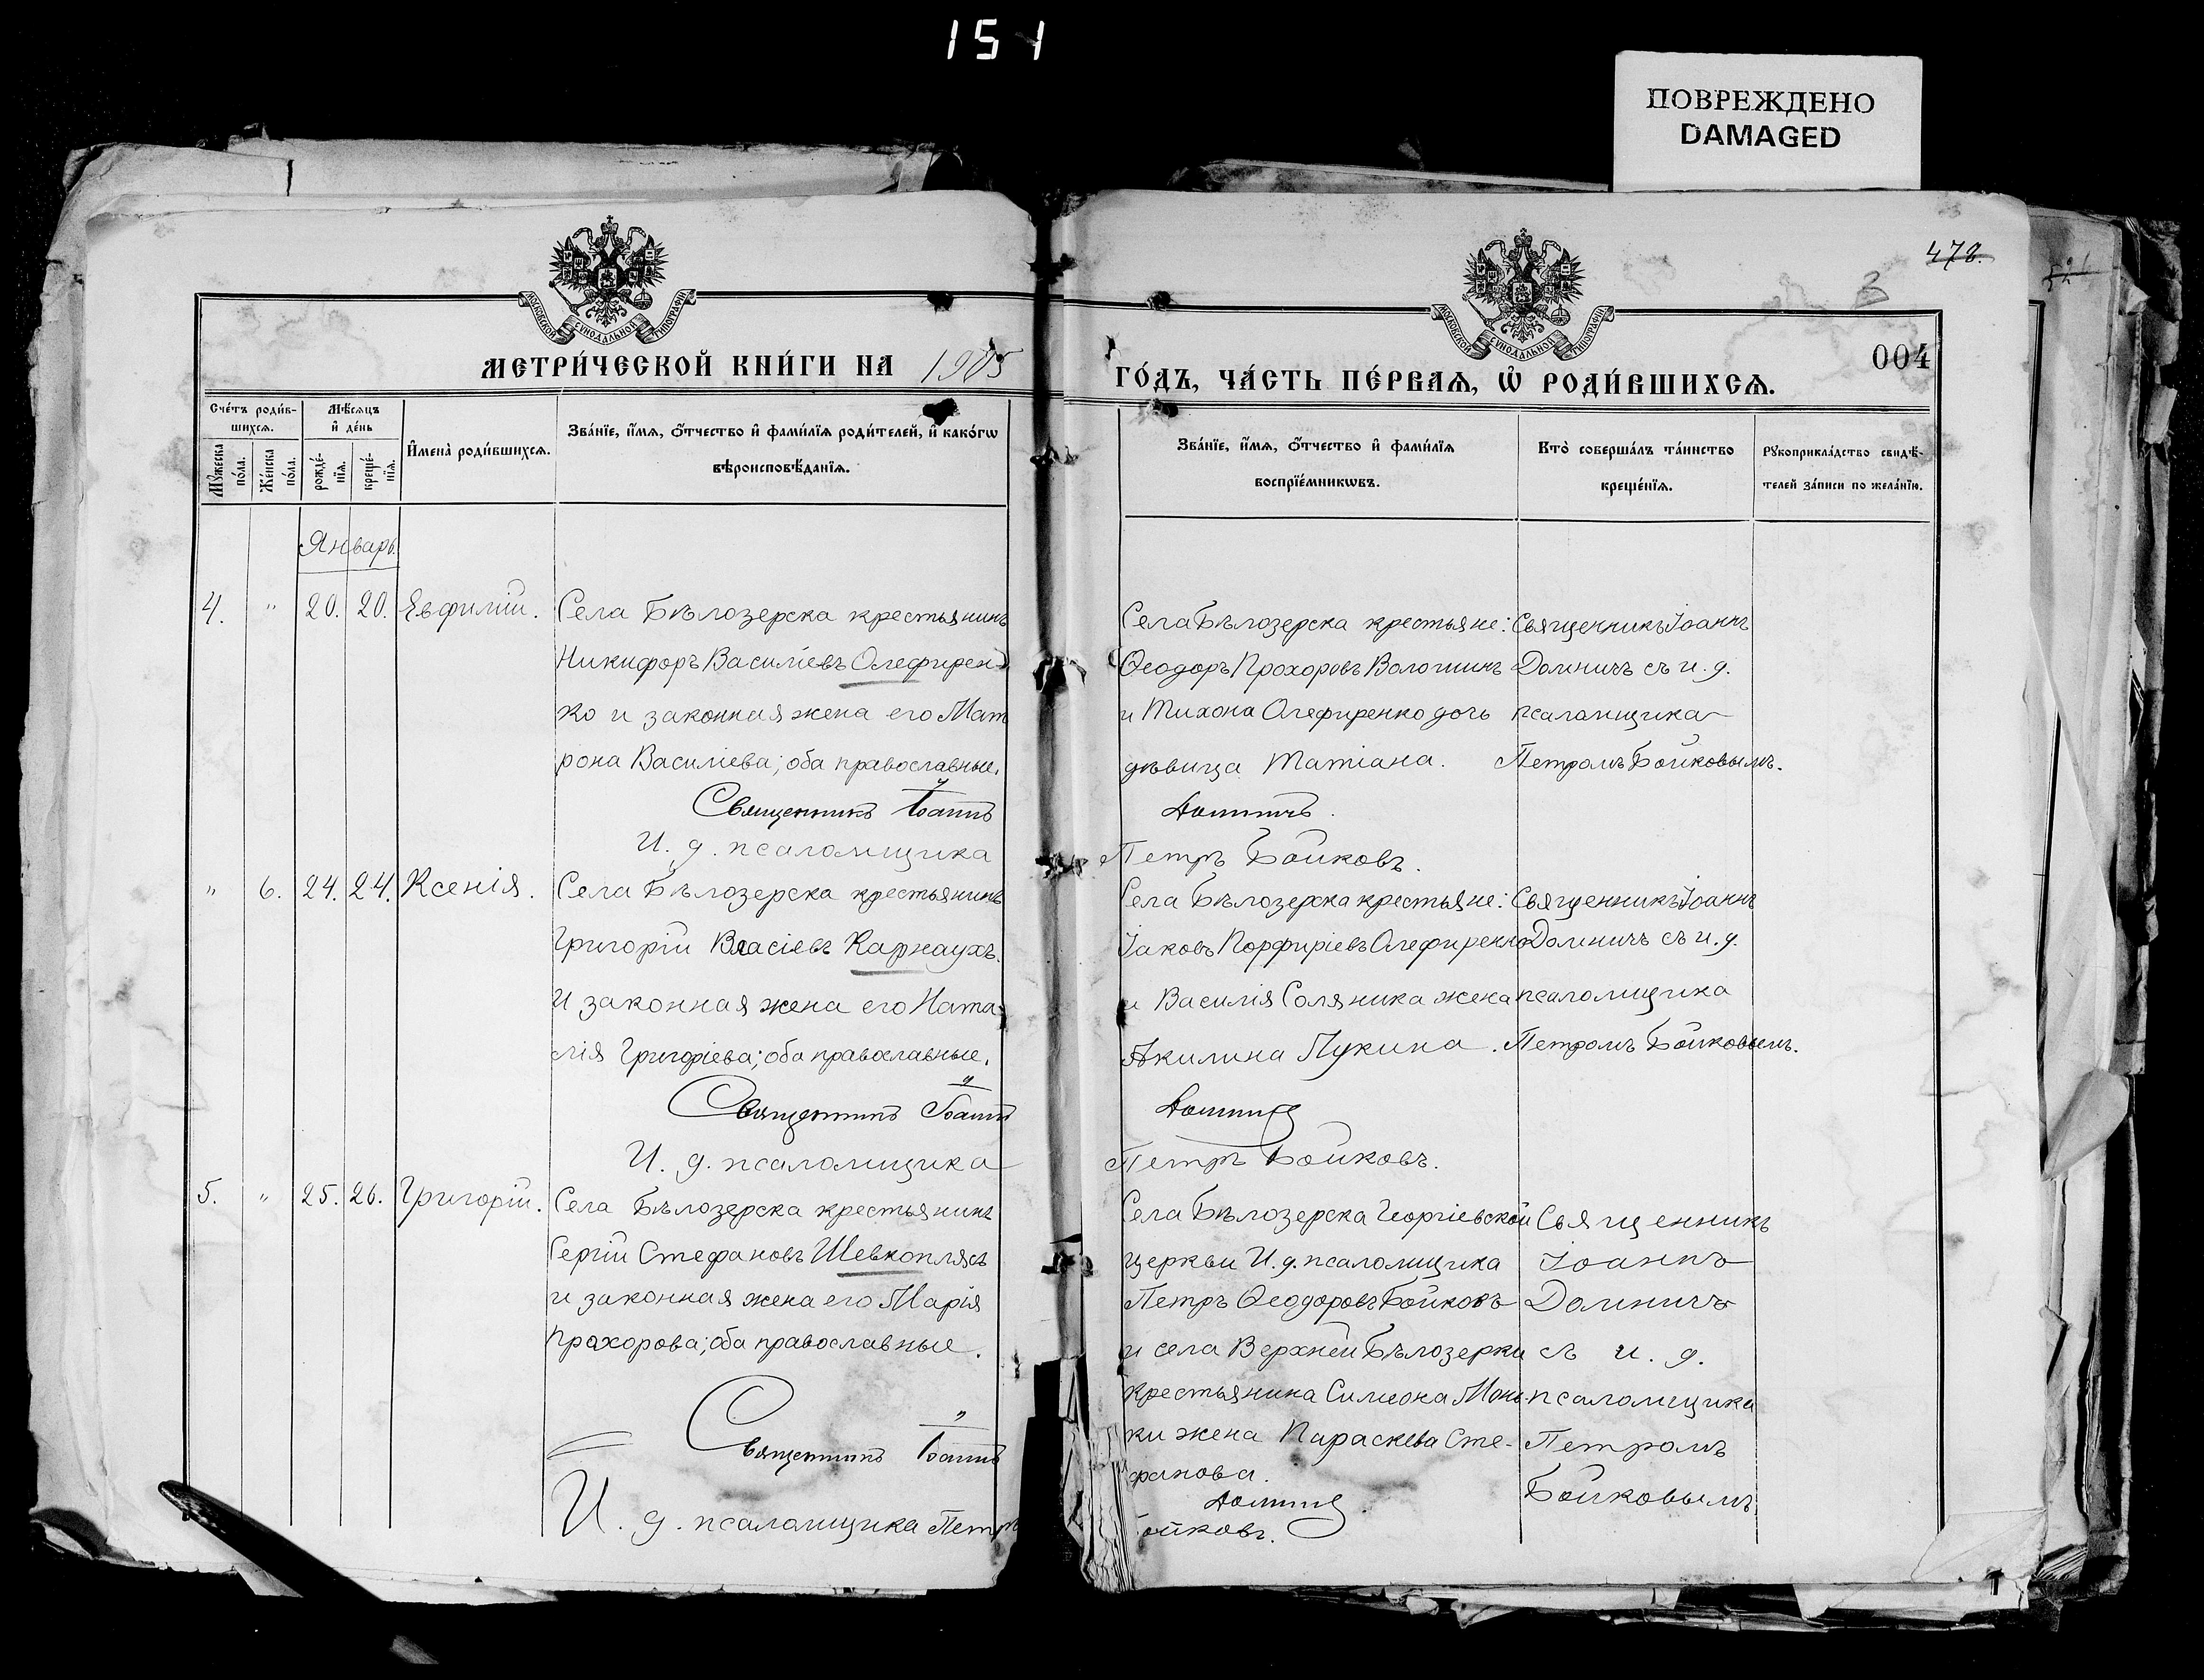 151
ПОВРЕЖДЕНО
DAMAGED
478.
3
004
МОСКОВСКОЙ СѴНОДАЛЬНОЙ ТИПОГРАФІИ
МОСКОВСКОЙ СѴНОДАЛЬНОЙ ТИПОГРАФІИ
МЕТРИ́ЧЕСКОЙ КНИ́ГИ НА 1905
ГО́ДЪ, ЧА́СТЬ ПЕ́РВАѦ, Ѡ҆ РОДИ́ВШИХСѦ.
Сче́тъ роди́в-
шихсѧ.
Мѣ́сѧцъ
и҆ де́нь
Мꙋ́жеска
по́ла.
Же́нска
по́ла.
рожде́-
нїѧ.
креще́-
нїѧ.
И҆мена̀ роди́вшихсѧ.
Зва́нїе, и҆́мѧ, ѻ҆́тчество и҆ фами́лїѧ роди́телей, и҆ како́гѡ
вѣроисповѣ́данїѧ.
Зва́нїе, и҆́мѧ, ѻ҆́тчество и҆ фами́лїѧ
воспрїе́мникѡвъ.
Кто̀ соверша́лъ та́инство
креще́нїѧ.
Рꙋкоприкла́дство свидѣ́-
телей за́писи по жела́нїю.
Январь.
4. " 20. 20. Евфимій.
Села Бѣлозерска крестьянинъ
Никифоръ Василіевъ Олефирен-
ко и законная жена его Мат
рона Василіева; оба православные.
Священникъ Іоаннъ
И. д. псаломщика
Села Бѣлозерска крестьяне:
Ѳеодоръ Прохоровъ Волошинъ
и Тихона Олефиренко дочь
дѣвица Татіана.
Домничъ.
Петръ Бойковъ.
Священникъ Іоаннъ
Домничъ съ и. д.
псаломщика
Петромъ Бойковымъ.
" 6. 24. 24. Ксенія.
Села Бѣлозерска крестьянинъ
Григорій Власіевъ Карнаухъ
и законная жена его Ната-
лія Григоріева; оба православные.
Священникъ Іоаннъ
И. д. псаломщика
Села Бѣлозерска крестьяне:
Іаковъ Порфиріевъ Олефиренко
и Василія Соляника жена
Акилина Лукина.
Домничъ
Петръ Бойковъ.
Священникъ Іоаннъ
Домничъ съ и. д.
псаломщика
Петромъ Бойковымъ.
5. " 25. 26. Григорій.
Села Бѣлозерска крестьянинъ
Сергій Стефановъ Шевкоплясъ
и законная жена его Марія
Прохорова; оба православные.
Священникъ Іоаннъ
И. д. псаломщика Петръ
Села Бѣлозерска Георгіевской
церкви И. д. псаломщика
Петръ Ѳеодоровъ Бойковъ
и села Верхней Бѣлозерки
крестьянина Симеона
ки жена Параскева Сте-
фанова.
Домничъ.
Бойковъ.
Священникъ
Іоаннъ
Домничъ
съ и. д.
псаломщика
Петромъ
Бойковымъ